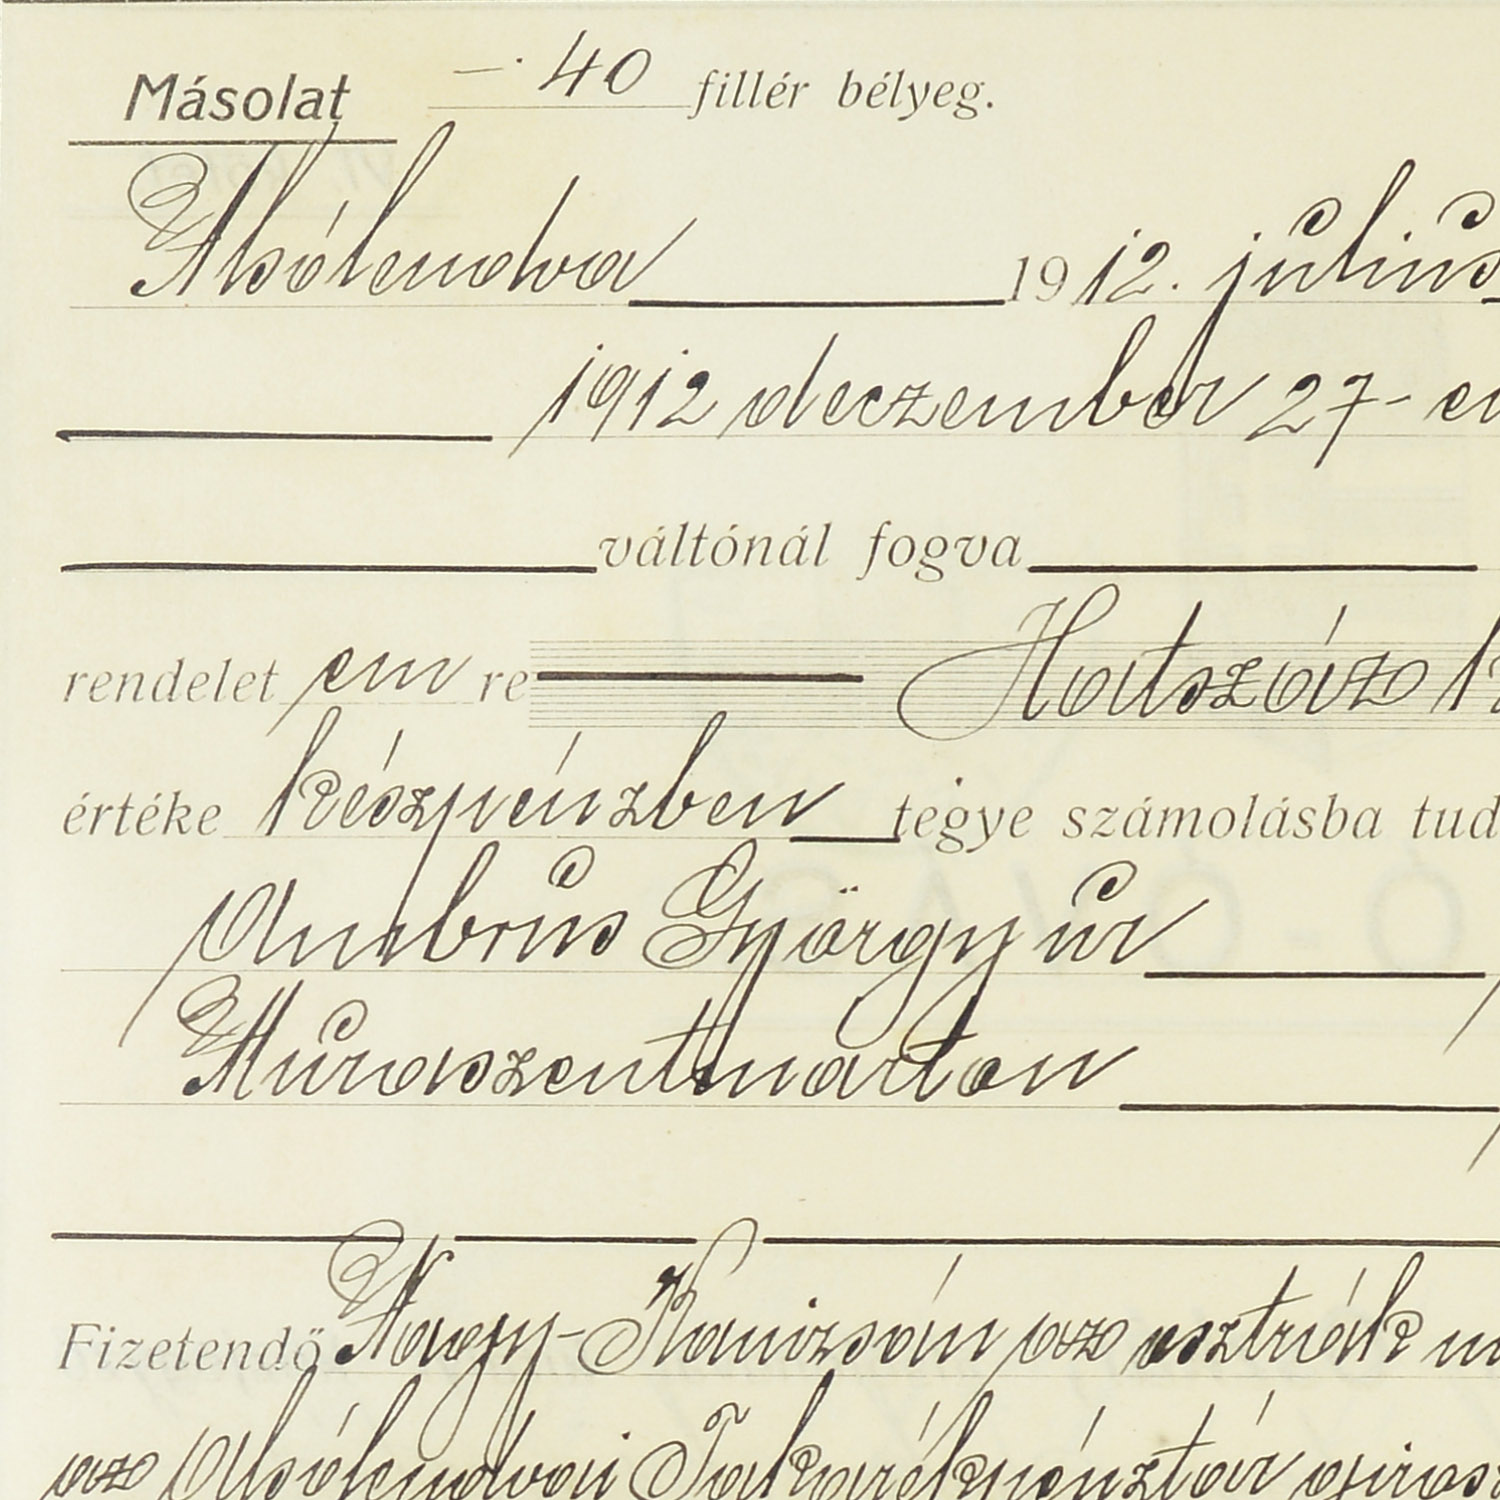 Másolat —· 40 fillér bélyeg.
Alsólendva 1912. július
1912 deczember 27-
váltónál fogva
rendelet em re Hatszáz
értéke készpénzben tégye számolásba tud
Ambrus György úr
Muraszentmárton
Fizetendő Nagy-Kanizsán az osztrák
az Alsólendvai Takarékpénztár